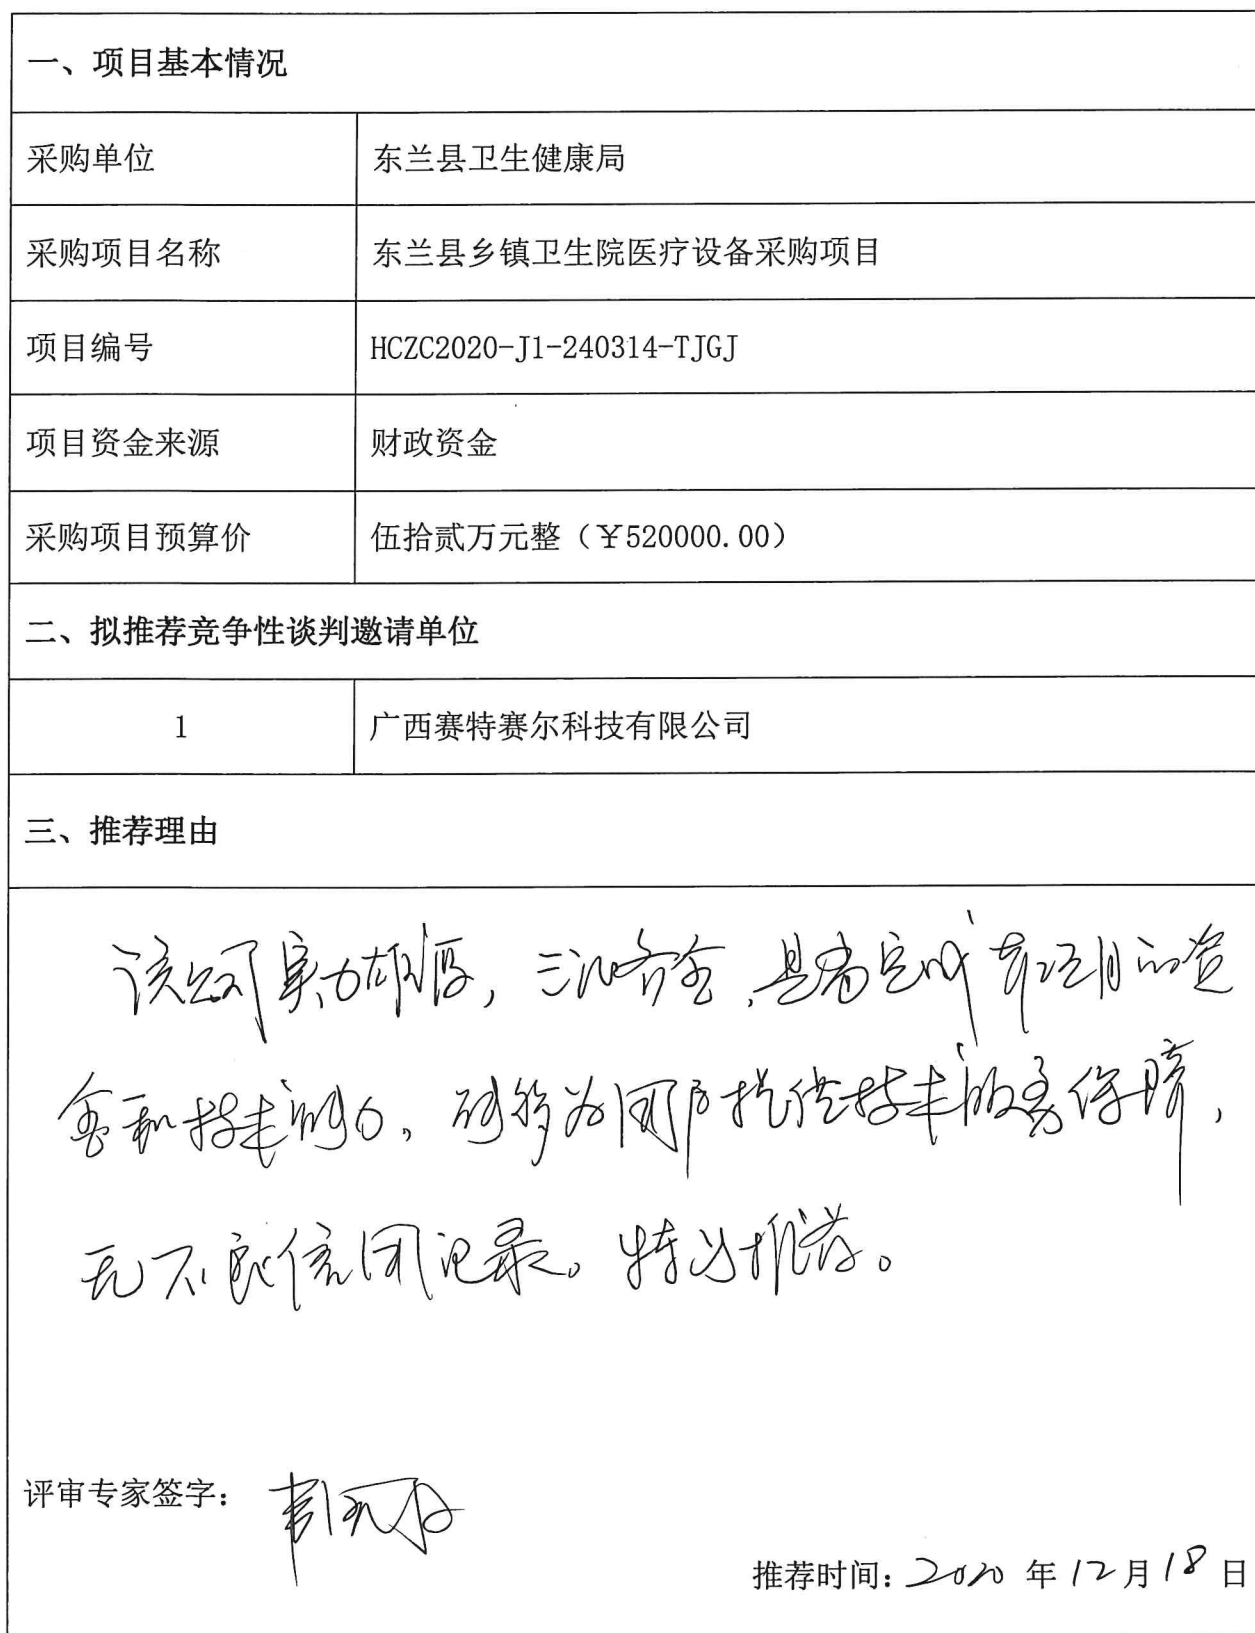 一、项目基本情况
采购单位 东兰县卫生健康局
采购项目名称 东兰县乡镇卫生院医疗设备采购项目
项目编号 HCZC2020-J1-240314-TJGJ
项目资金来源 财政资金
采购项目预算价 伍拾贰万元整（￥520000.00）
二、拟推荐竞争性谈判邀请单位
1 广西赛特赛尔科技有限公司
三、推荐理由
该公司实力雄厚，三证齐全，具备完成本项目的资
金和技术能力。能够为用户提供技术服务保障，
无不良信用记录。特为推荐。
评审专家签字：
推荐时间：2020 年 12 月 18 日